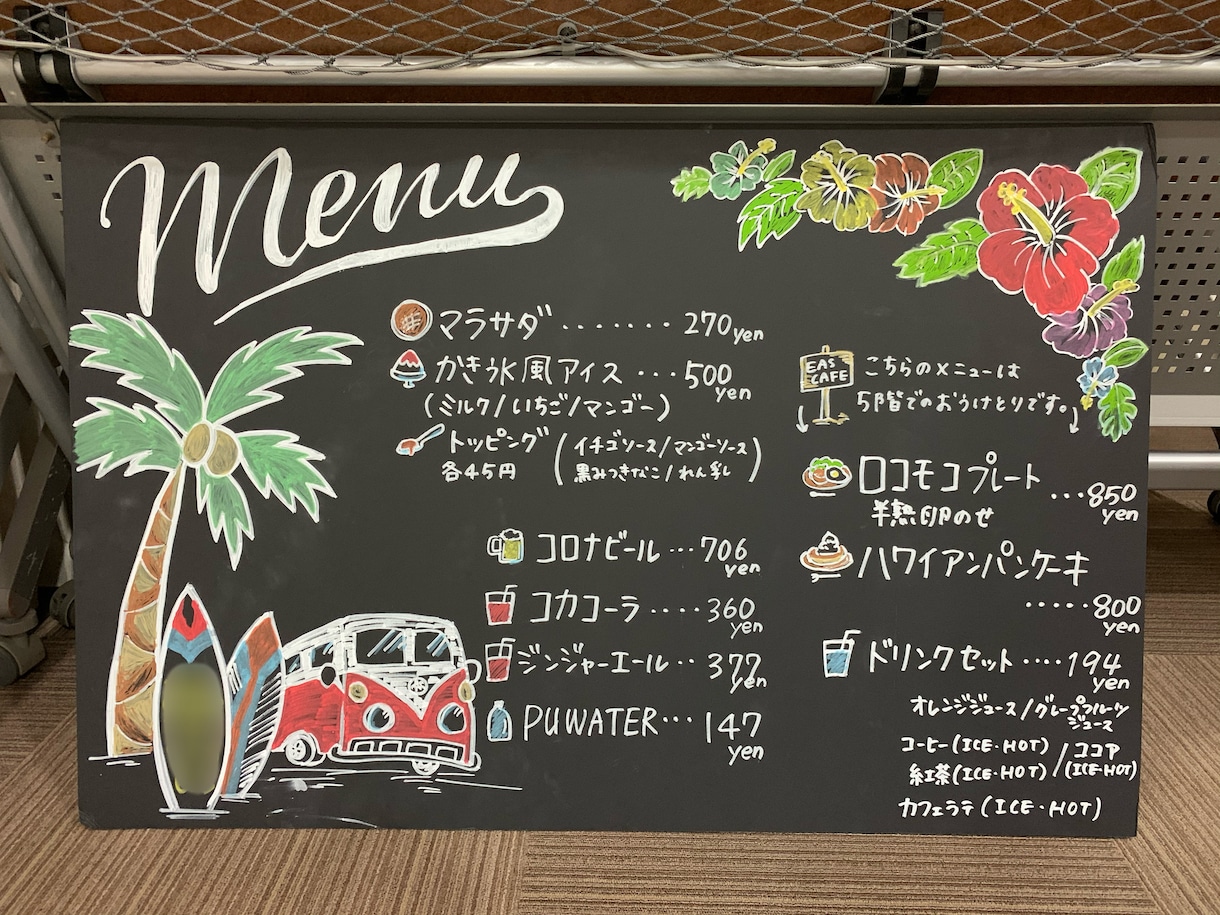 Menu
マラサダ ....... 270yen
かき氷風アイス ... 500yen
(ミルク/いちご/マンゴー)
トッピング (イチゴソース/マンゴーソース
各45円 黒みつきなこ/れん乳)
コロナビール ... 706yen
コカコーラ .... 360yen
ジンジャーエール .. 377yen
PUWATER ... 147yen
EAS
CAFE
こちらのメニューは
5階でのおうけとりです。
ロコモコプレート ... 850yen
半熟卵のせ
ハワイアンパンケーキ
..... 800yen
ドリンクセット .... 194yen
オレンジジュース/グレープフルーツ
ジュース
コーヒー(ICE・HOT)/ココア
紅茶(ICE・HOT) (ICE・HOT)
カフェラテ(ICE・HOT)